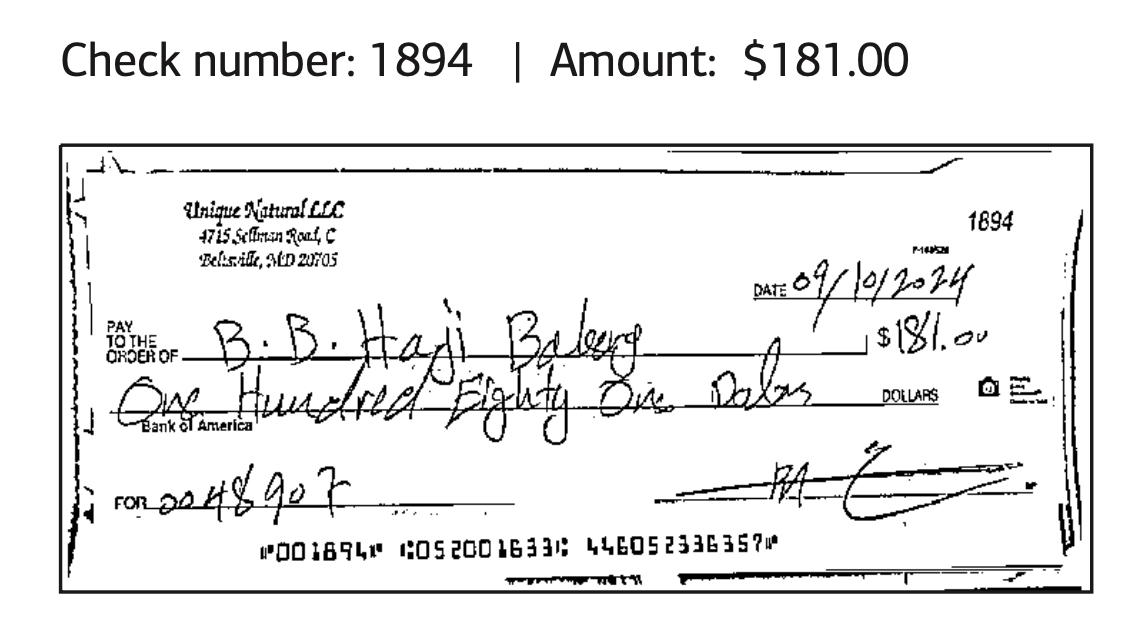 Check number: 1894 | Amount: $181.00
Unique Natural LLC
4715 Sellman Road, C
Beltsville, MD 20705
1894
DATE 09/10/2024
PAY TO THE ORDER OF B. B. Haji $181.00
One Hundred Eighty One DOLLARS
Bank of America
FOR 0048907
⑈001894⑈ ⑆052001633⑆ 446052336357⑈